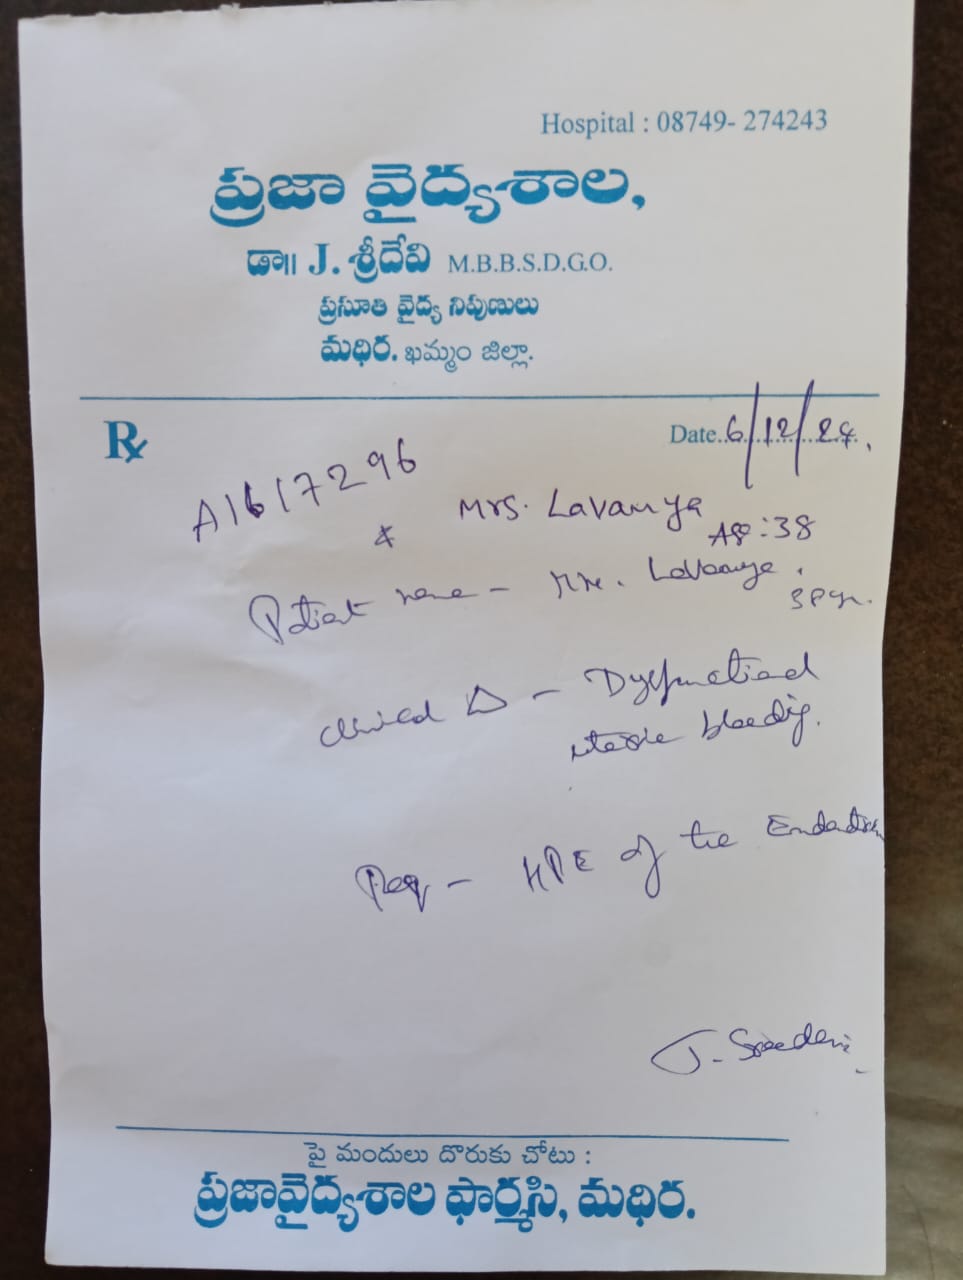 Hospital : 08749- 274243
ప్రజా వైద్యశాల,
డా॥ J. శ్రీదేవి M.B.B.S.D.G.O.
ప్రసూతి వైద్య నిపుణులు
మధిర. ఖమ్మం జిల్లా.
Rx
Date..6/12/24.
A1617296
Mrs. Lavanya
Age:38
Patient name - Mrs. Lavanya.
38yr.
clinical Δ - Dysfunctional
uterine bleeding.
Req - HPE of the
J. Sreedevi
పై మందులు దొరుకు చోటు :
ప్రజావైద్యశాల ఫార్మసి, మధిర.